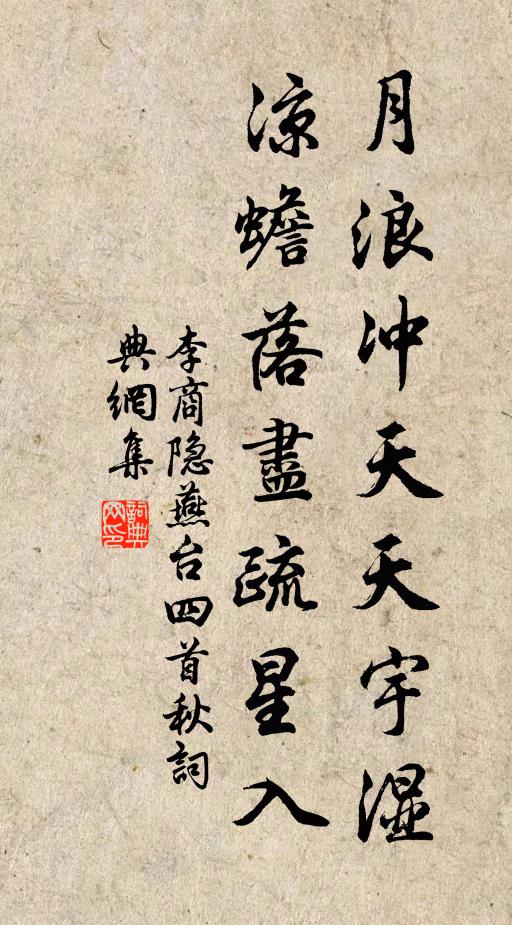 月浪冲天天宇湿
涼蟾落盡疏星入
李商隐燕台四首秋詞
典網集
詞典
网印